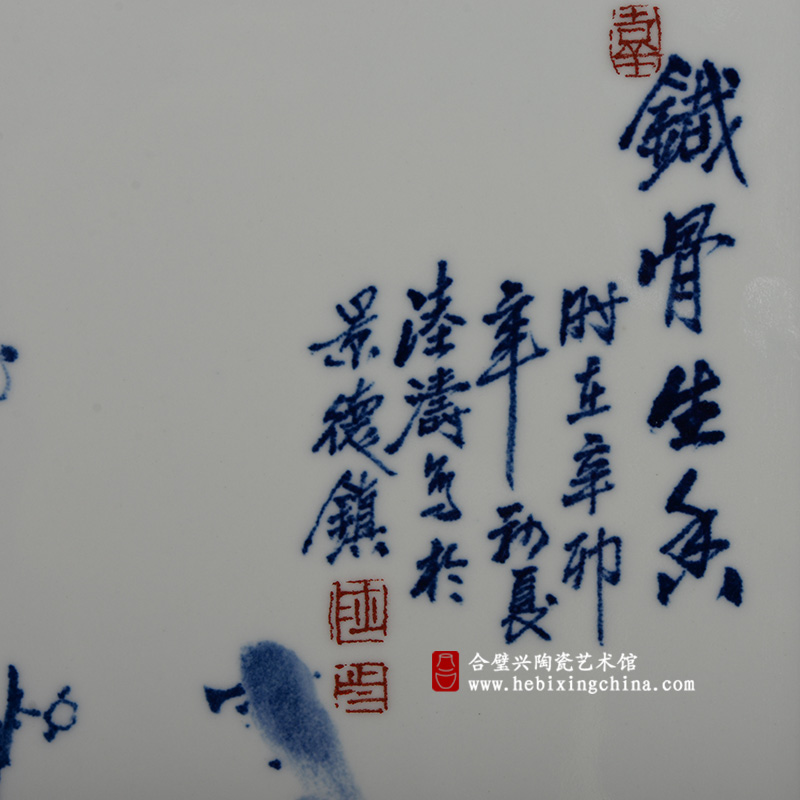 鐵骨生香
时在辛卯
年初夏
涛写於
景德鎮
合璧兴陶瓷艺术馆
www.hebixingchina.com